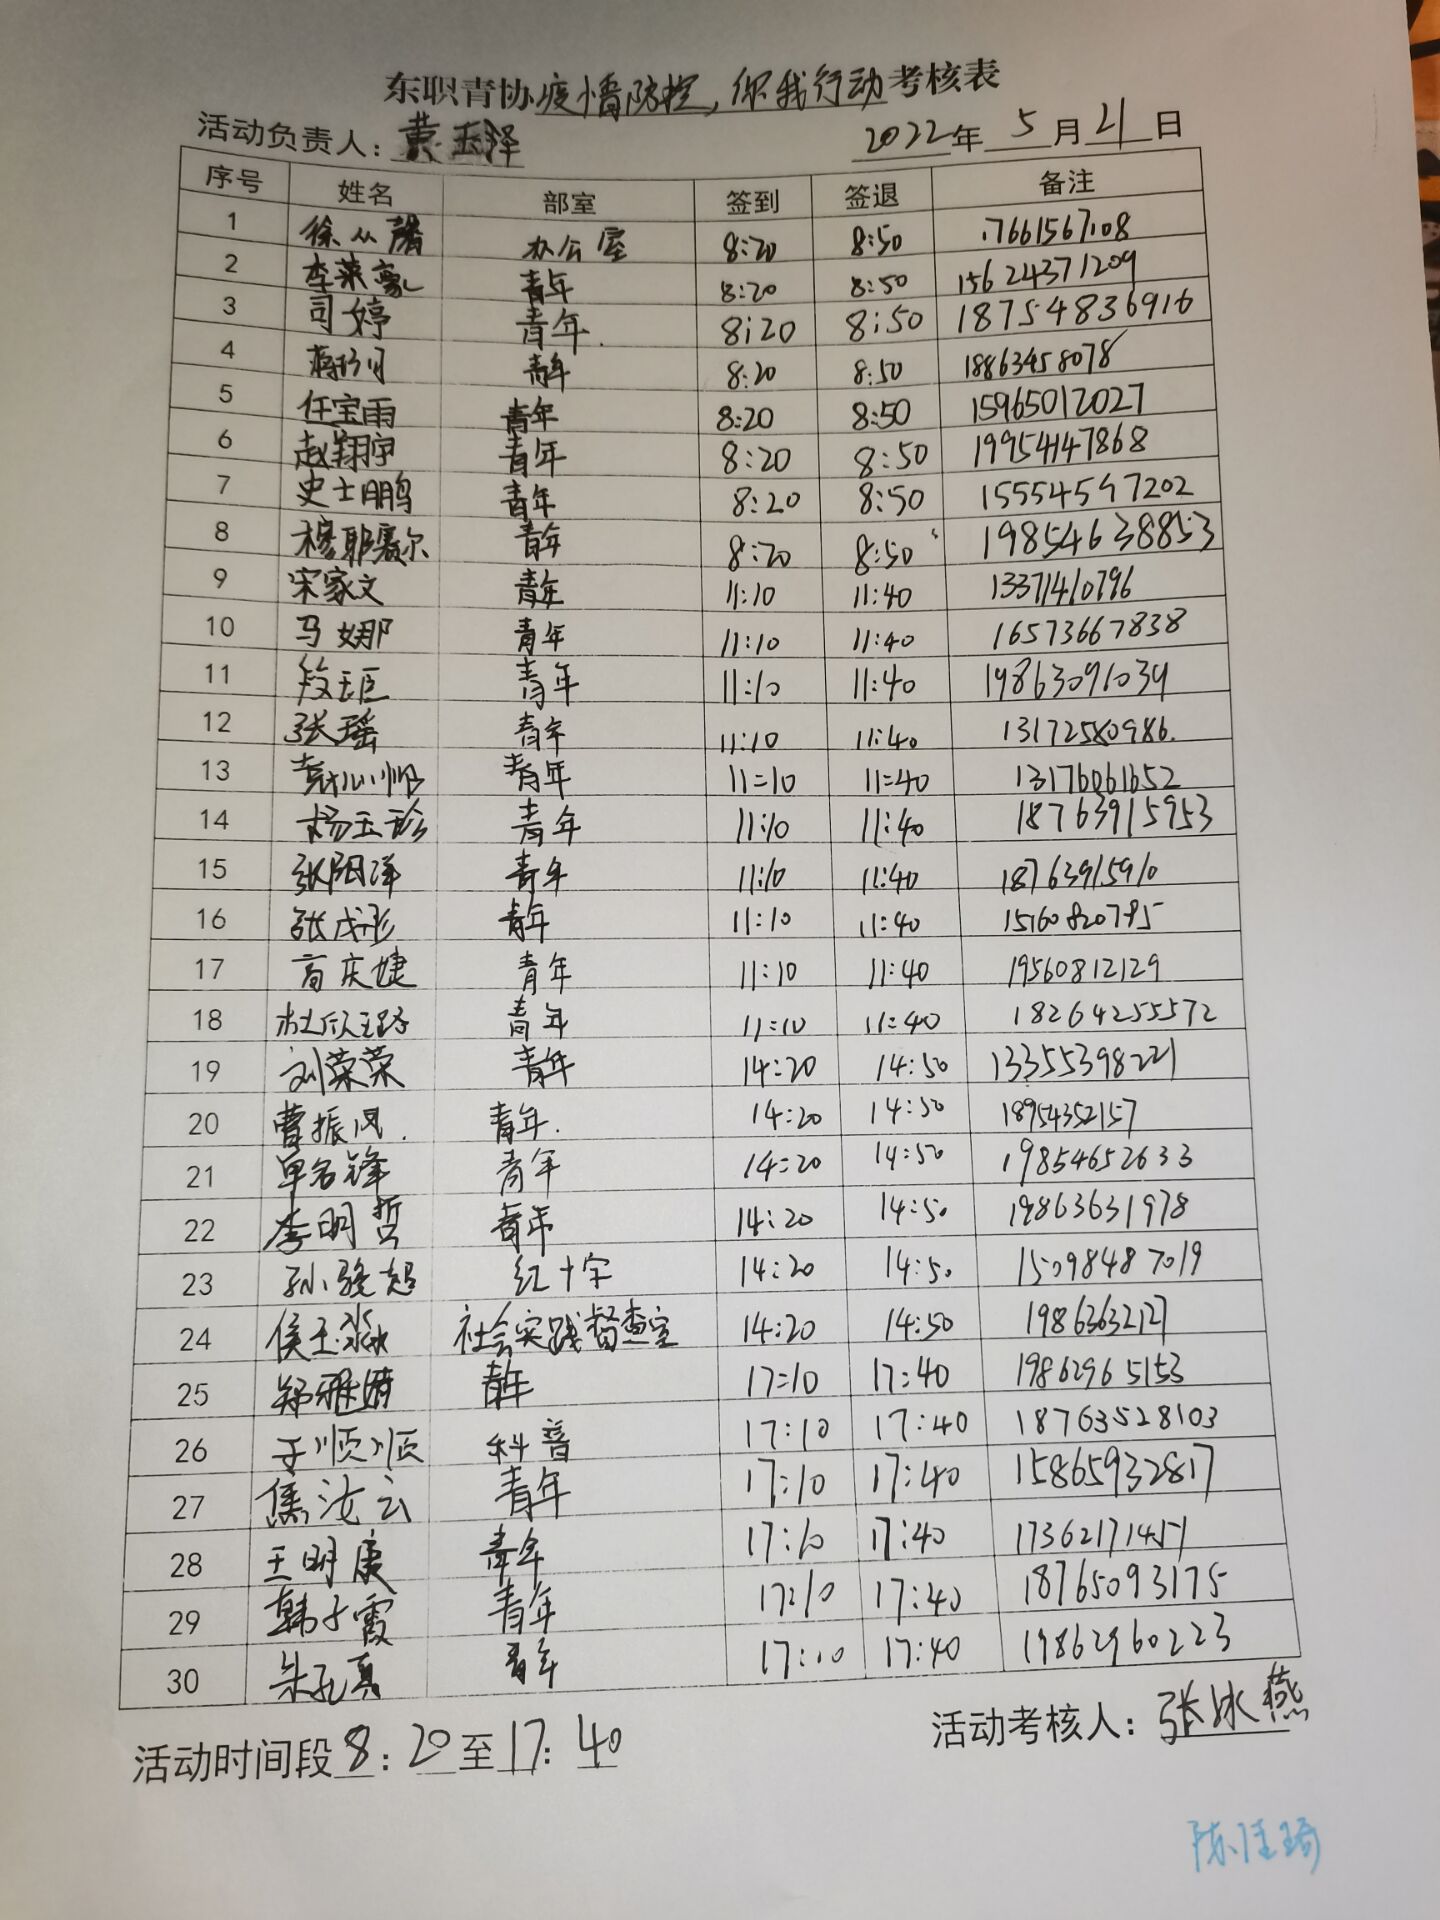 东职青协疫情防控,你我行动考核表
活动负责人:黄玉泽 2022年 5月21日
序号 姓名 部室 签到 签退 备注
1 徐从 办公室 8:20 8:50 17661567108
2 李莱豪 青年 8:20 8:50 15624371209
3 司婷 青年. 8:20 8:50 187548836916
4 蒋 青年 8:20 8:50 18863458078
5 任宝雨 青年 8:20 8:50 15965012027
6 赵翔宇 青年 8:20 8:50 19954147868
7 史士鹏 青年 8:20 8:50 15554597202
8 穆耶赛尔 青年 8:20 8:50 19854638853
9 宋家文 青年 11:10 11:40 13371410796
10 马娜 青年 11:10 11:40 16573667838
11 段玉臣 青年 11:10 11:40 19863091039
12 张瑶 青年 11:10 11:40 13172580986.
13 青年 11:10 11:40 13176061652
14 杨玉珍 青年 11:10 11:40 18763915953
15 张阳洋 青年 11:10 11:40 18763915910
16 张成彤 青年 11:10 11:40 15160820795
17 高庆婕 青年 11:10 11:40 19560812129
18 杜欣璐 青年 11:10 11:40 18264255572
19 刘荣荣 青年 14:20 14:50 13355398221
20 曹振凤. 青年. 14:20 14:50 18954352157
21 单名锋 青年 14:20 14:50 19854652633
22 李明哲 青年 14:20 14:50 19863631978
23 孙骏超 红十字 14:20 14:50 15098487019
24 侯玉淼 社会实践督查室 14:20 14:50 19863632127
25 郑雅婧 青年 17:10 17:40 19862965153
26 于顺顺 科普 17:10 17:40 18763528103
27 焦汝云 青年 17:10 17:40 15865932817
28 王明康 青年 17:10 17:40 17362171457
29 韩子霞 青年 17:10 17:40 18765093175
30 朱孔真 青年 17:10 17:40 19862960223
活动时间段 8:20至17:40 活动考核人:张冰燕
陈佳琦